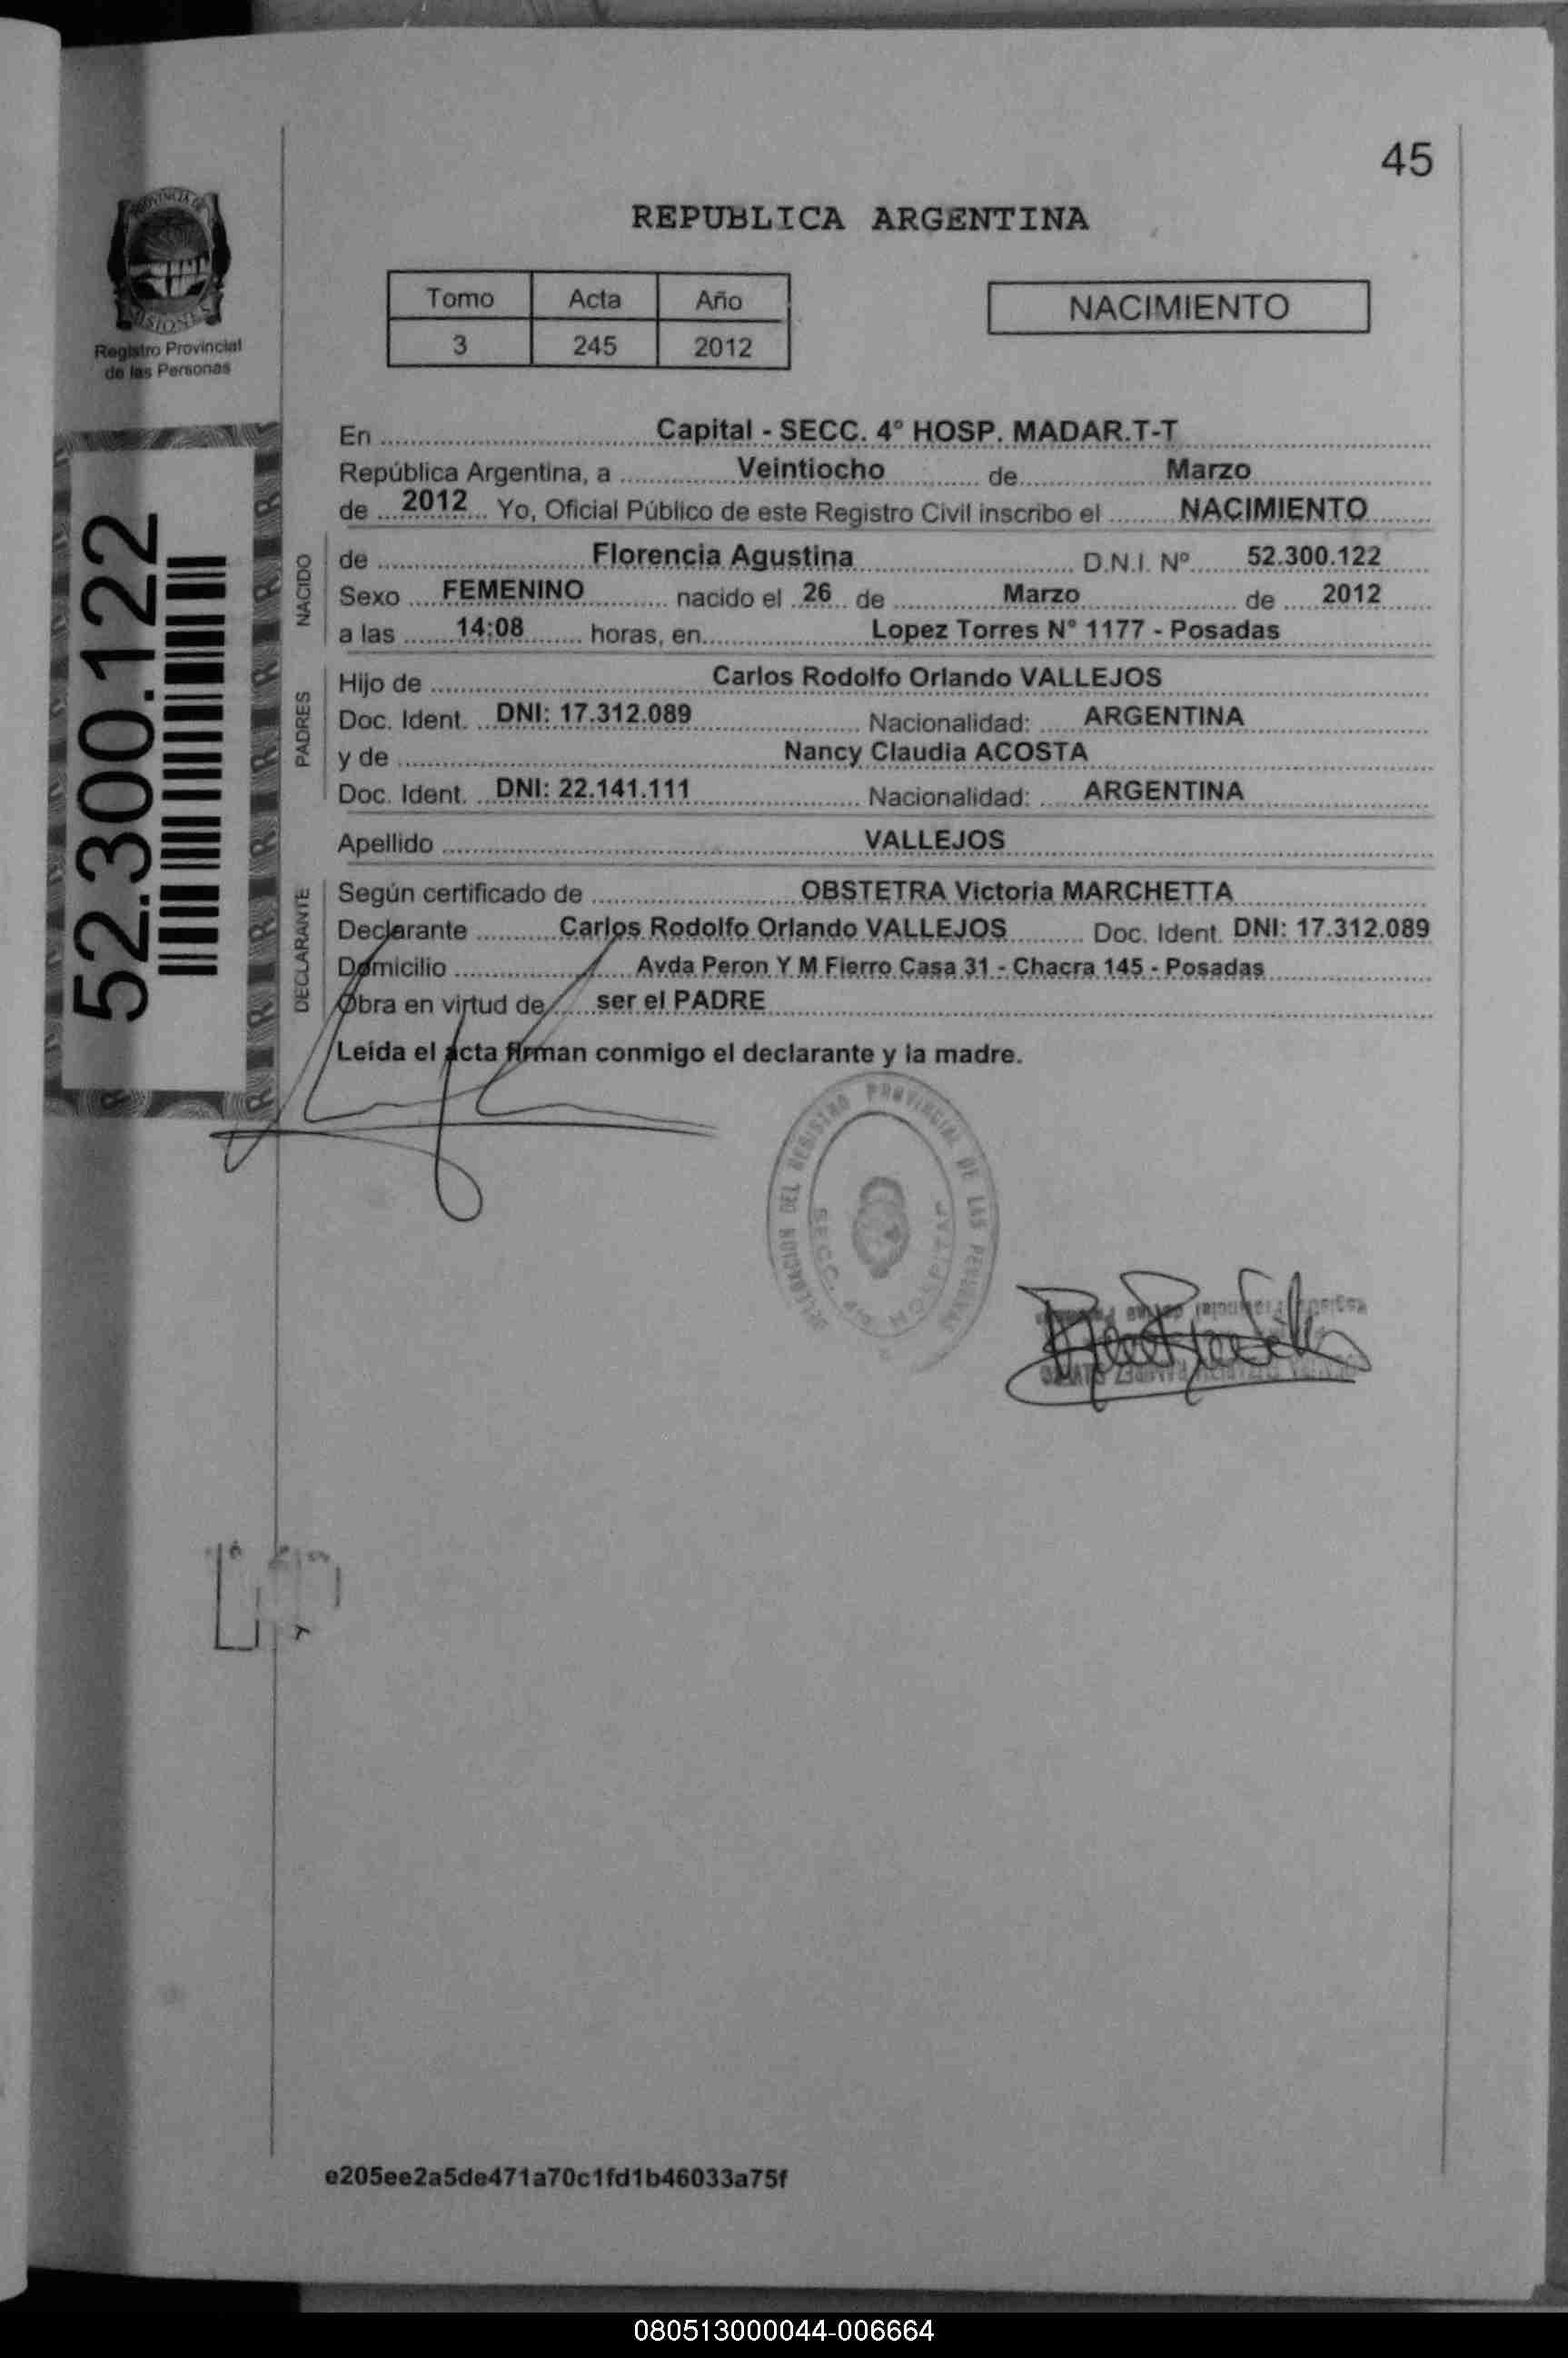 45
PROVINCIA DE
MISIONES
Registro Provincial
de las Personas
REPUBLICA ARGENTINA
Tomo Acta Año
3 245 2012
NACIMIENTO
52.300.122
En Capital - SECC. 4° HOSP. MADAR.T-T
República Argentina, a Veintiocho de Marzo
de 2012 Yo, Oficial Público de este Registro Civil inscribo el NACIMIENTO
NACIDO
de Florencia Agustina D.N.I. Nº 52.300.122
Sexo FEMENINO nacido el 26 de Marzo de 2012
a las 14:08 horas, en Lopez Torres N° 1177 - Posadas
PADRES
Hijo de Carlos Rodolfo Orlando VALLEJOS
Doc. Ident. DNI: 17.312.089 Nacionalidad: ARGENTINA
y de Nancy Claudia ACOSTA
Doc. Ident. DNI: 22.141.111 Nacionalidad: ARGENTINA
Apellido VALLEJOS
DECLARANTE
Según certificado de OBSTETRA Victoria MARCHETTA
Declarante Carlos Rodolfo Orlando VALLEJOS Doc. Ident. DNI: 17.312.089
Domicilio Avda Peron Y M Fierro Casa 31 - Chacra 145 - Posadas
Obra en virtud de ser el PADRE
Leída el acta firman conmigo el declarante y la madre.
DELEGACION DEL REGISTRO PROVINCIAL DE LAS PERSONAS
SECC. 4ª HOSPITAL
e205ee2a5de471a70c1fd1b46033a75f
080513000044-006664